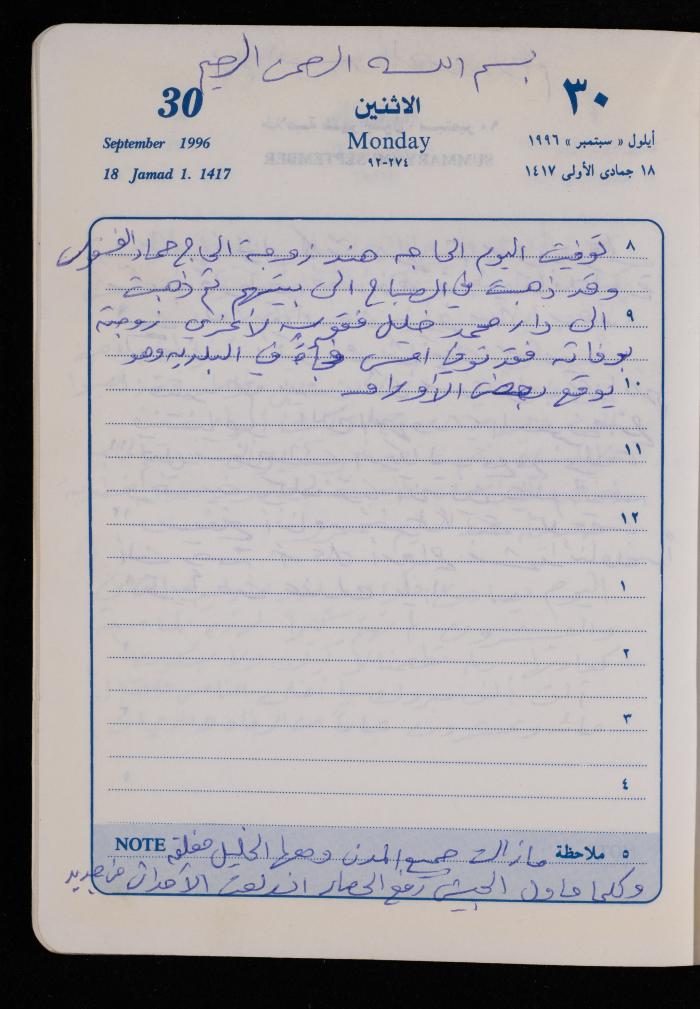 بسم الله الرحمن الرحيم
30 الاثنين ٣٠
September 1996 Monday أيلول « سبتمبر » ١٩٩٦
٩٢-٢٧٤
18 Jamad 1. 1417 ١٨ جمادى الأولى ١٤١٧
٨ توفيت اليوم الحاجه هند زوجة الحاج حماد
وقد ذهبت في الصباح الى بيتهم ثم ذهبت
٩ الى دار محمد خليل لأعزي زوجته
بوفاته فقد توفي امس فجأة في البلديه وهو
١٠ يوقع بعض الأوراق
١١
١٢
١
٢
٣
٤
NOTE ٥ ملاحظة مازالت جميع المدن ومنها الخليل مغلقه
وكلما حاول الجيش رفع الحصار اندلعت الأحداث من جديد